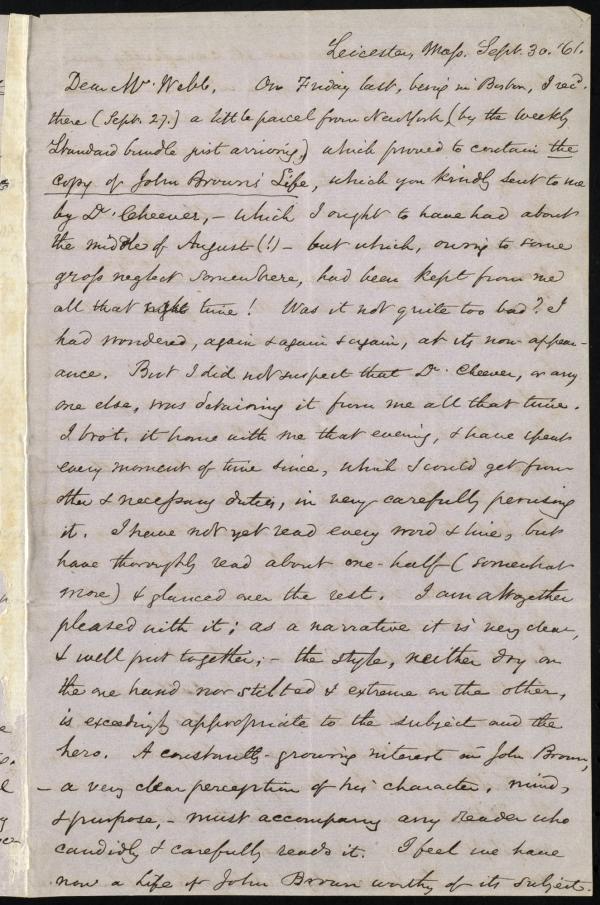 Leicester, Mass. Sept. 30. '61.
Dear Mr. Webb. On Friday last, being in Boston, I recd.
there (Sept. 27.) a little parcel from New York, (by the weekly
Standard bundle just arriving,) which proved to contain the
copy of John Brown's Life, which you kindly sent to me
by Dr. Cheever, - which I ought to have had about
the middle of August (!) - but which, owing to some
gross neglect somewhere, had been kept from me
all that time! Was it not quite too bad? I
had wondered, again & again & again, at its non appear-
ance. But I did not suspect that Dr. Cheever, or any
one else, was detaining it from me all that time.
I brot. it home with me that evening, & have spent
every moment of time since, which I could get from
other & necessary duties, in very carefully perusing
it. I have not yet read every word & line, but
have thoroughly read about one-half (somewhat
more) & glanced over the rest. I am altogether
pleased with it; as a narrative it is very clear,
& well put together; - the style, neither dry on
the one hand nor stilted & extreme on the other,
is exceedingly appropriate to the subject and the
hero. A constantly-growing interest in John Brown,
- a very clear perception of his character, mind,
& purpose, - must accompany any reader who
candidly & carefully reads it. I feel we have
now a Life of John Brown worthy of its subject.